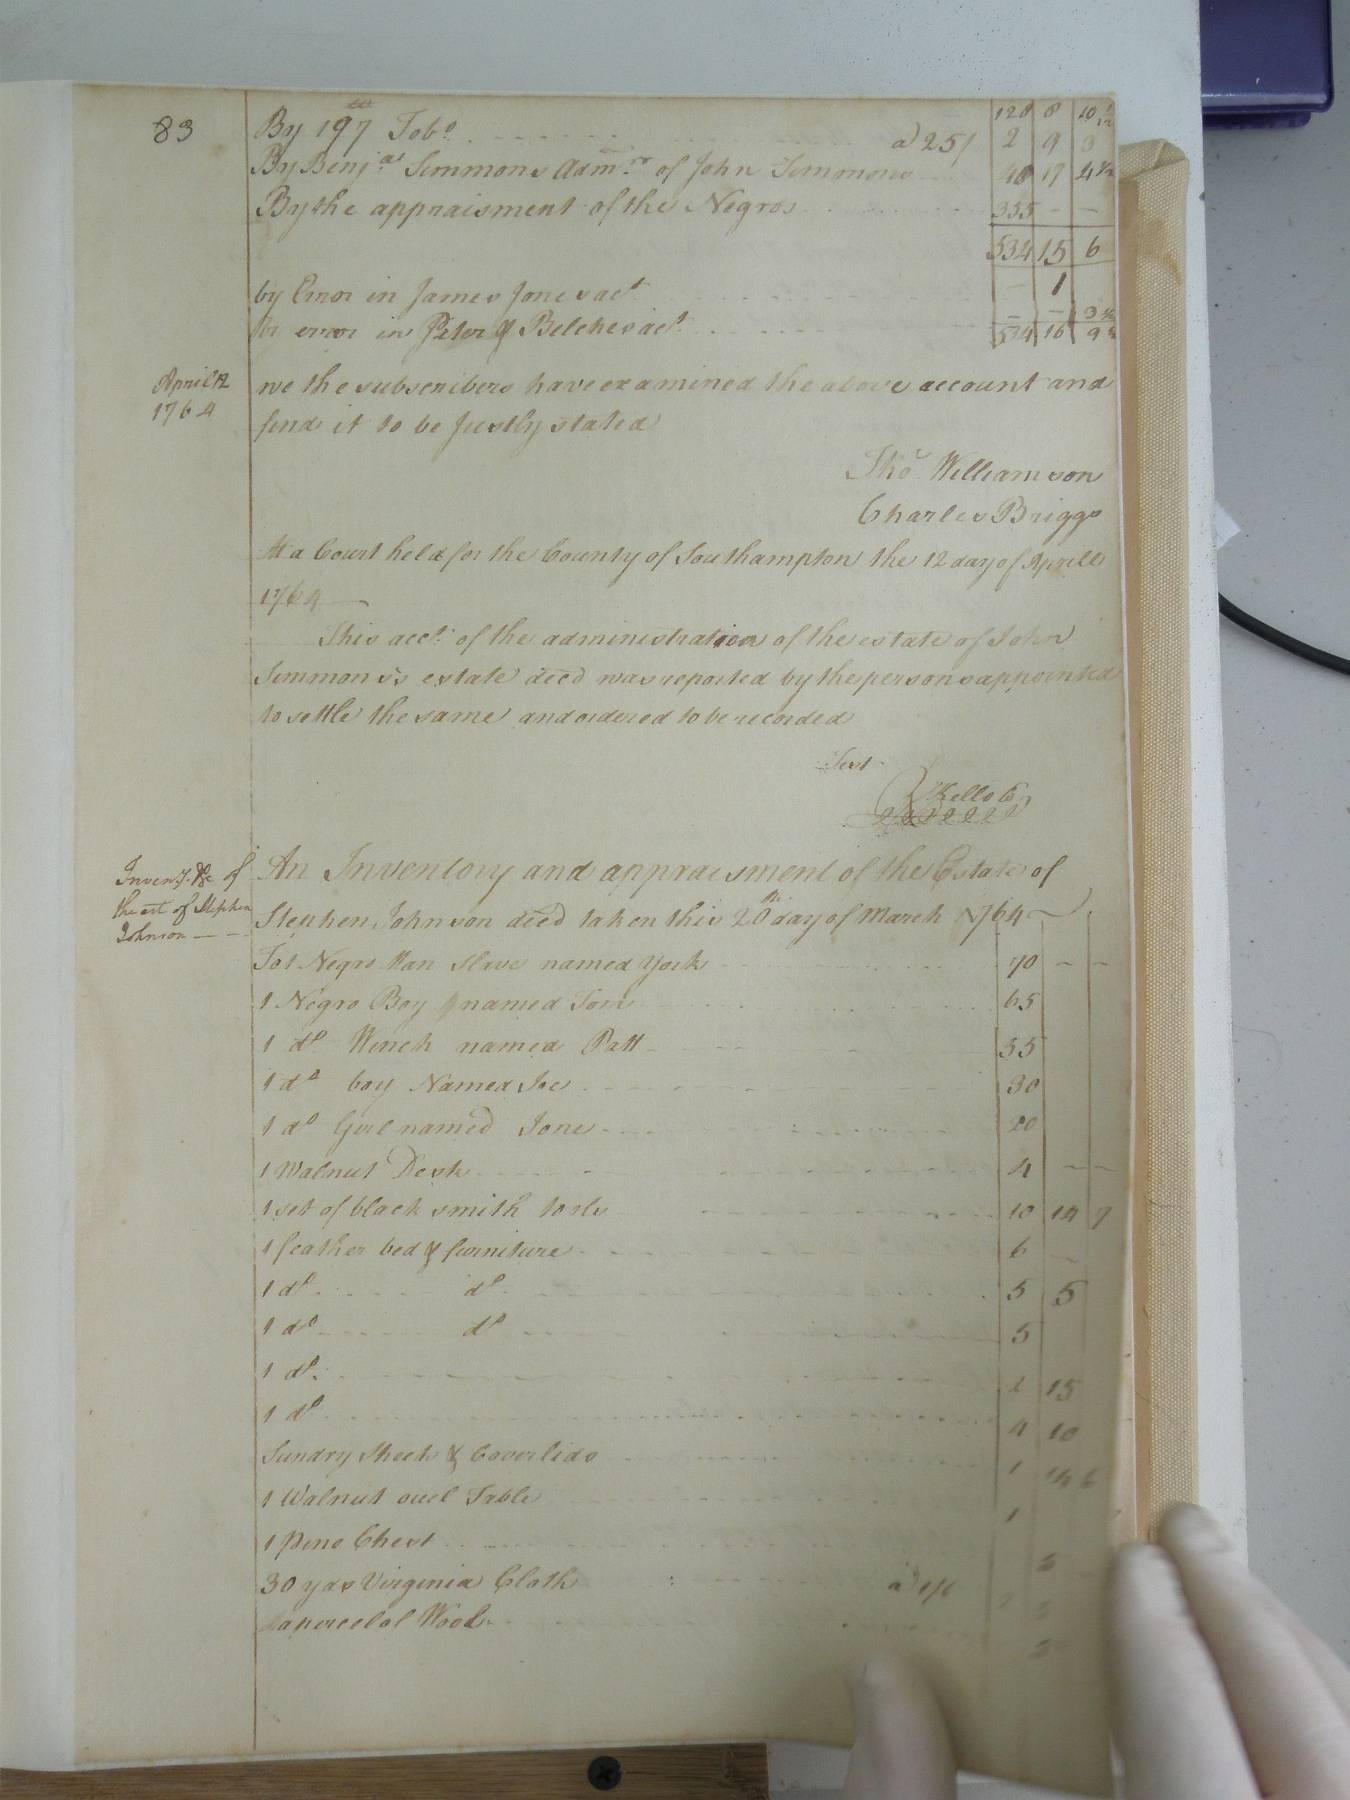 83
128 8 10
By 197 lb Tobo. a) 25/ 2 9 3
By Benja. Simmons Admr. of John Simmons 48 17 4½
By the appraisment of the Negros 355 - -
534 15 6
by Error in James Jones act. - 1
by error in Peter & Belches act. - - 3¾
534 16 9¾
April 12
1764
we the subscribers have examined the above account and
find it to be Justly stated
Tho. Williamson
Charles Briggs
At a Court held for the County of Southampton the 12 day of Aprill
1764
This acct. of the administration of the estate of John
Simmons's estate decd was reported by the persons appointed
to settle the same and ordered to be recorded
Test
R Kello C
Inveny. &c of
the est of Stephen
Johnson
An Inventory and appraisment of the Estate of
Stephen Johnson decd taken this 20th day of March 1764
To 1 Negro Man slave named York 70 - -
1 Negro Boy named Tom 65
1 do Wench named Patt 55
1 do boy Named Joe 30
1 do Girl named Jone 20
1 Walnut Desk 4 - -
1 set of black smith tools 10 14 7
1 feather bed & furniture 6 -
1 do do 5 5
1 do do 5
1 do. 2 15
1 do 4 10
Sundry Sheets & Coverlids 1 14 6
1 Walnut ovel Table 1
1 Pine Chest 5
30 yds Virginia Cloth a)
a percel of Wool